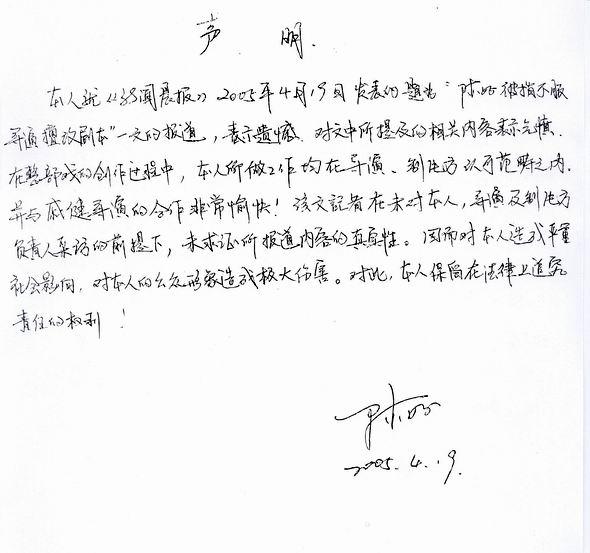 声 明.
本人就《新闻晨报》2005年4月19日发表的题为“陈好被指不服
导演擅改剧本”一文的报道，表示遗憾. 对文中所提及的相关内容表示气愤.
在整部戏的创作过程中，本人所做工作均在导演、制片方认可范畴之内.
并与戚健导演的合作非常愉快！该文記者在未对本人，导演及制片方
负责人采访的前提下，未求证所报道内容的真实性。因而对本人造成严重
社会影响，对本人的公众形象造成极大伤害。对此，本人保留在法律上追究
责任的权利！
陈好
2005.4.19.